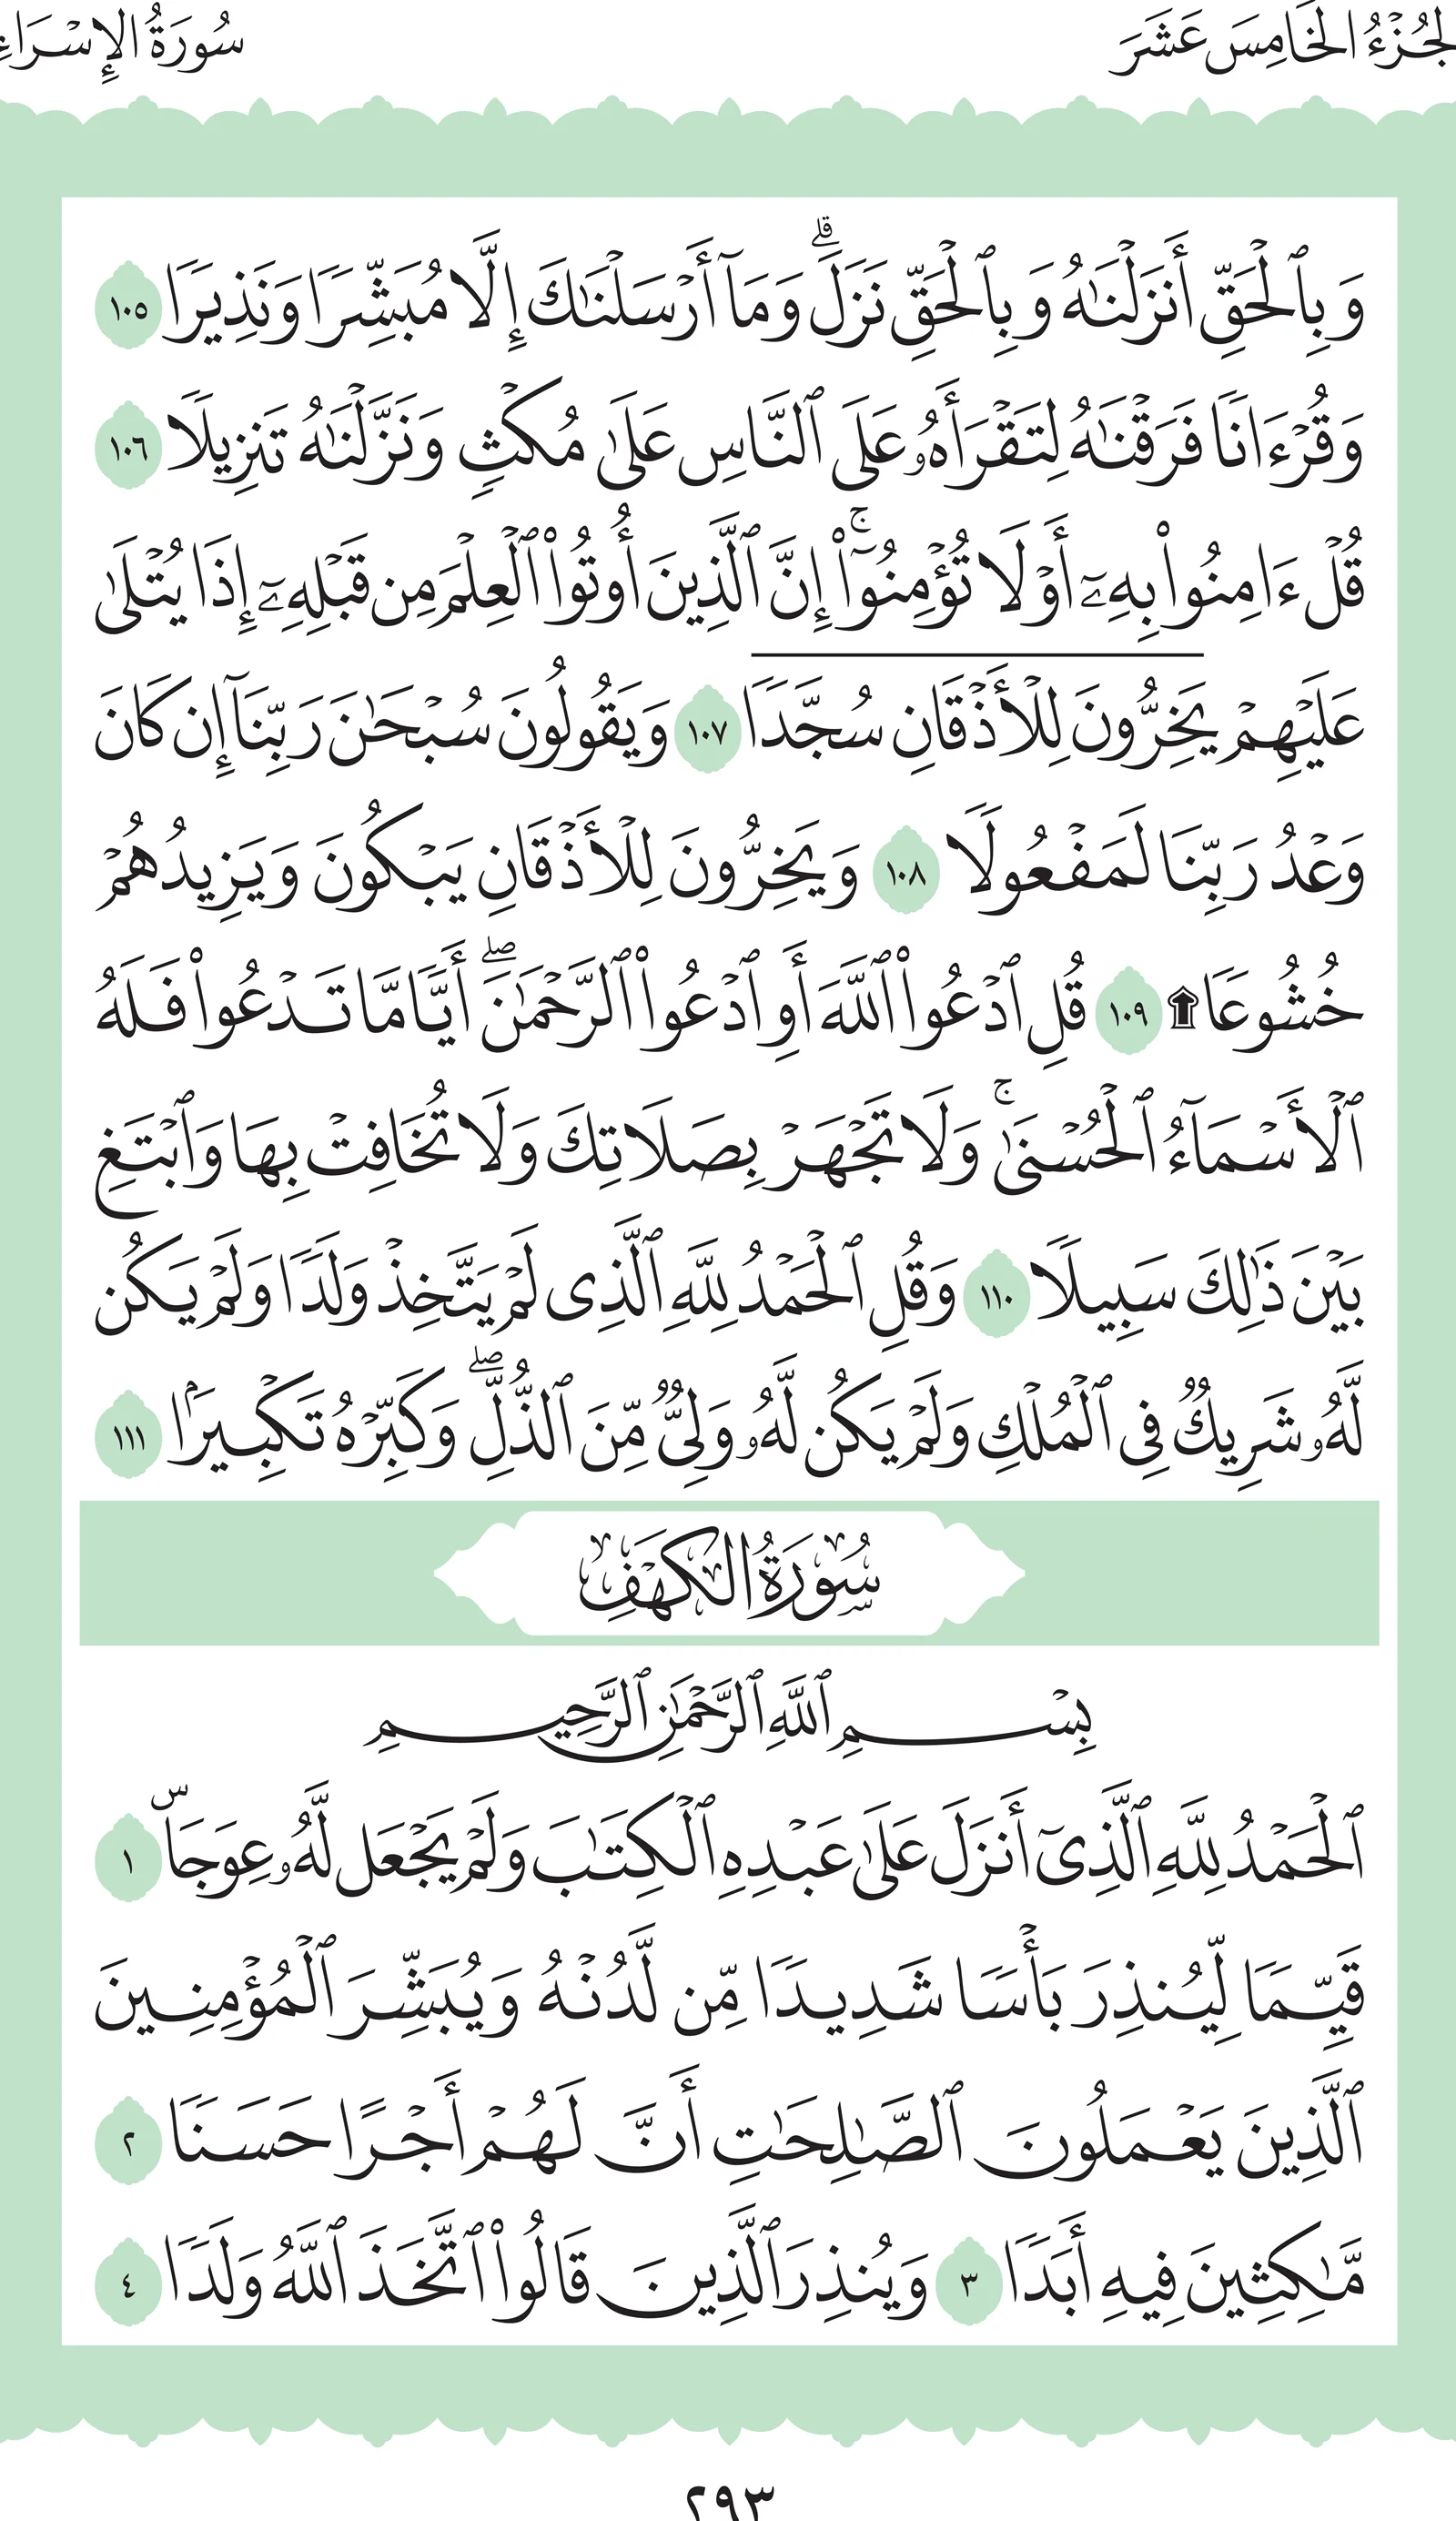 الجُزْءُ الخَامِسَ عَشَرَ
سُورَةُ الإِسْرَاءِ
وَبِٱلْحَقِّ أَنزَلْنَـٰهُ وَبِٱلْحَقِّ نَزَلَ ۗ وَمَآ أَرْسَلْنَـٰكَ إِلَّا مُبَشِّرًا وَنَذِيرًا ١٠٥
وَقُرْءَانًا فَرَقْنَـٰهُ لِتَقْرَأَهُۥ عَلَى ٱلنَّاسِ عَلَىٰ مُكْثٍ وَنَزَّلْنَـٰهُ تَنزِيلًا ١٠٦
قُلْ ءَامِنُوا۟ بِهِۦٓ أَوْ لَا تُؤْمِنُوٓا۟ ۚ إِنَّ ٱلَّذِينَ أُوتُوا۟ ٱلْعِلْمَ مِن قَبْلِهِۦٓ إِذَا يُتْلَىٰ
عَلَيْهِمْ يَخِرُّونَ لِلْأَذْقَانِ سُجَّدًا ١٠٧ وَيَقُولُونَ سُبْحَـٰنَ رَبِّنَآ إِن كَانَ
وَعْدُ رَبِّنَا لَمَفْعُولًا ١٠٨ وَيَخِرُّونَ لِلْأَذْقَانِ يَبْكُونَ وَيَزِيدُهُمْ
خُشُوعًا ۩ ١٠٩ قُلِ ٱدْعُوا۟ ٱللَّهَ أَوِ ٱدْعُوا۟ ٱلرَّحْمَـٰنَ ۖ أَيًّا مَّا تَدْعُوا۟ فَلَهُ
ٱلْأَسْمَآءُ ٱلْحُسْنَىٰ ۚ وَلَا تَجْهَرْ بِصَلَاتِكَ وَلَا تُخَافِتْ بِهَا وَٱبْتَغِ
بَيْنَ ذَٰلِكَ سَبِيلًا ١١٠ وَقُلِ ٱلْحَمْدُ لِلَّهِ ٱلَّذِى لَمْ يَتَّخِذْ وَلَدًا وَلَمْ يَكُن
لَّهُۥ شَرِيكٌ فِى ٱلْمُلْكِ وَلَمْ يَكُن لَّهُۥ وَلِىٌّ مِّنَ ٱلذُّلِّ ۖ وَكَبِّرْهُ تَكْبِيرًۢا ١١١
سُورَةُ الكَهْفِ
بِسْمِ ٱللَّهِ ٱلرَّحْمَـٰنِ ٱلرَّحِيمِ
ٱلْحَمْدُ لِلَّهِ ٱلَّذِىٓ أَنزَلَ عَلَىٰ عَبْدِهِ ٱلْكِتَـٰبَ وَلَمْ يَجْعَل لَّهُۥ عِوَجَاۜ ١
قَيِّمًا لِّيُنذِرَ بَأْسًا شَدِيدًا مِّن لَّدُنْهُ وَيُبَشِّرَ ٱلْمُؤْمِنِينَ
ٱلَّذِينَ يَعْمَلُونَ ٱلصَّـٰلِحَـٰتِ أَنَّ لَهُمْ أَجْرًا حَسَنًا ٢
مَّـٰكِثِينَ فِيهِ أَبَدًا ٣ وَيُنذِرَ ٱلَّذِينَ قَالُوا۟ ٱتَّخَذَ ٱللَّهُ وَلَدًا ٤
٢٩٣